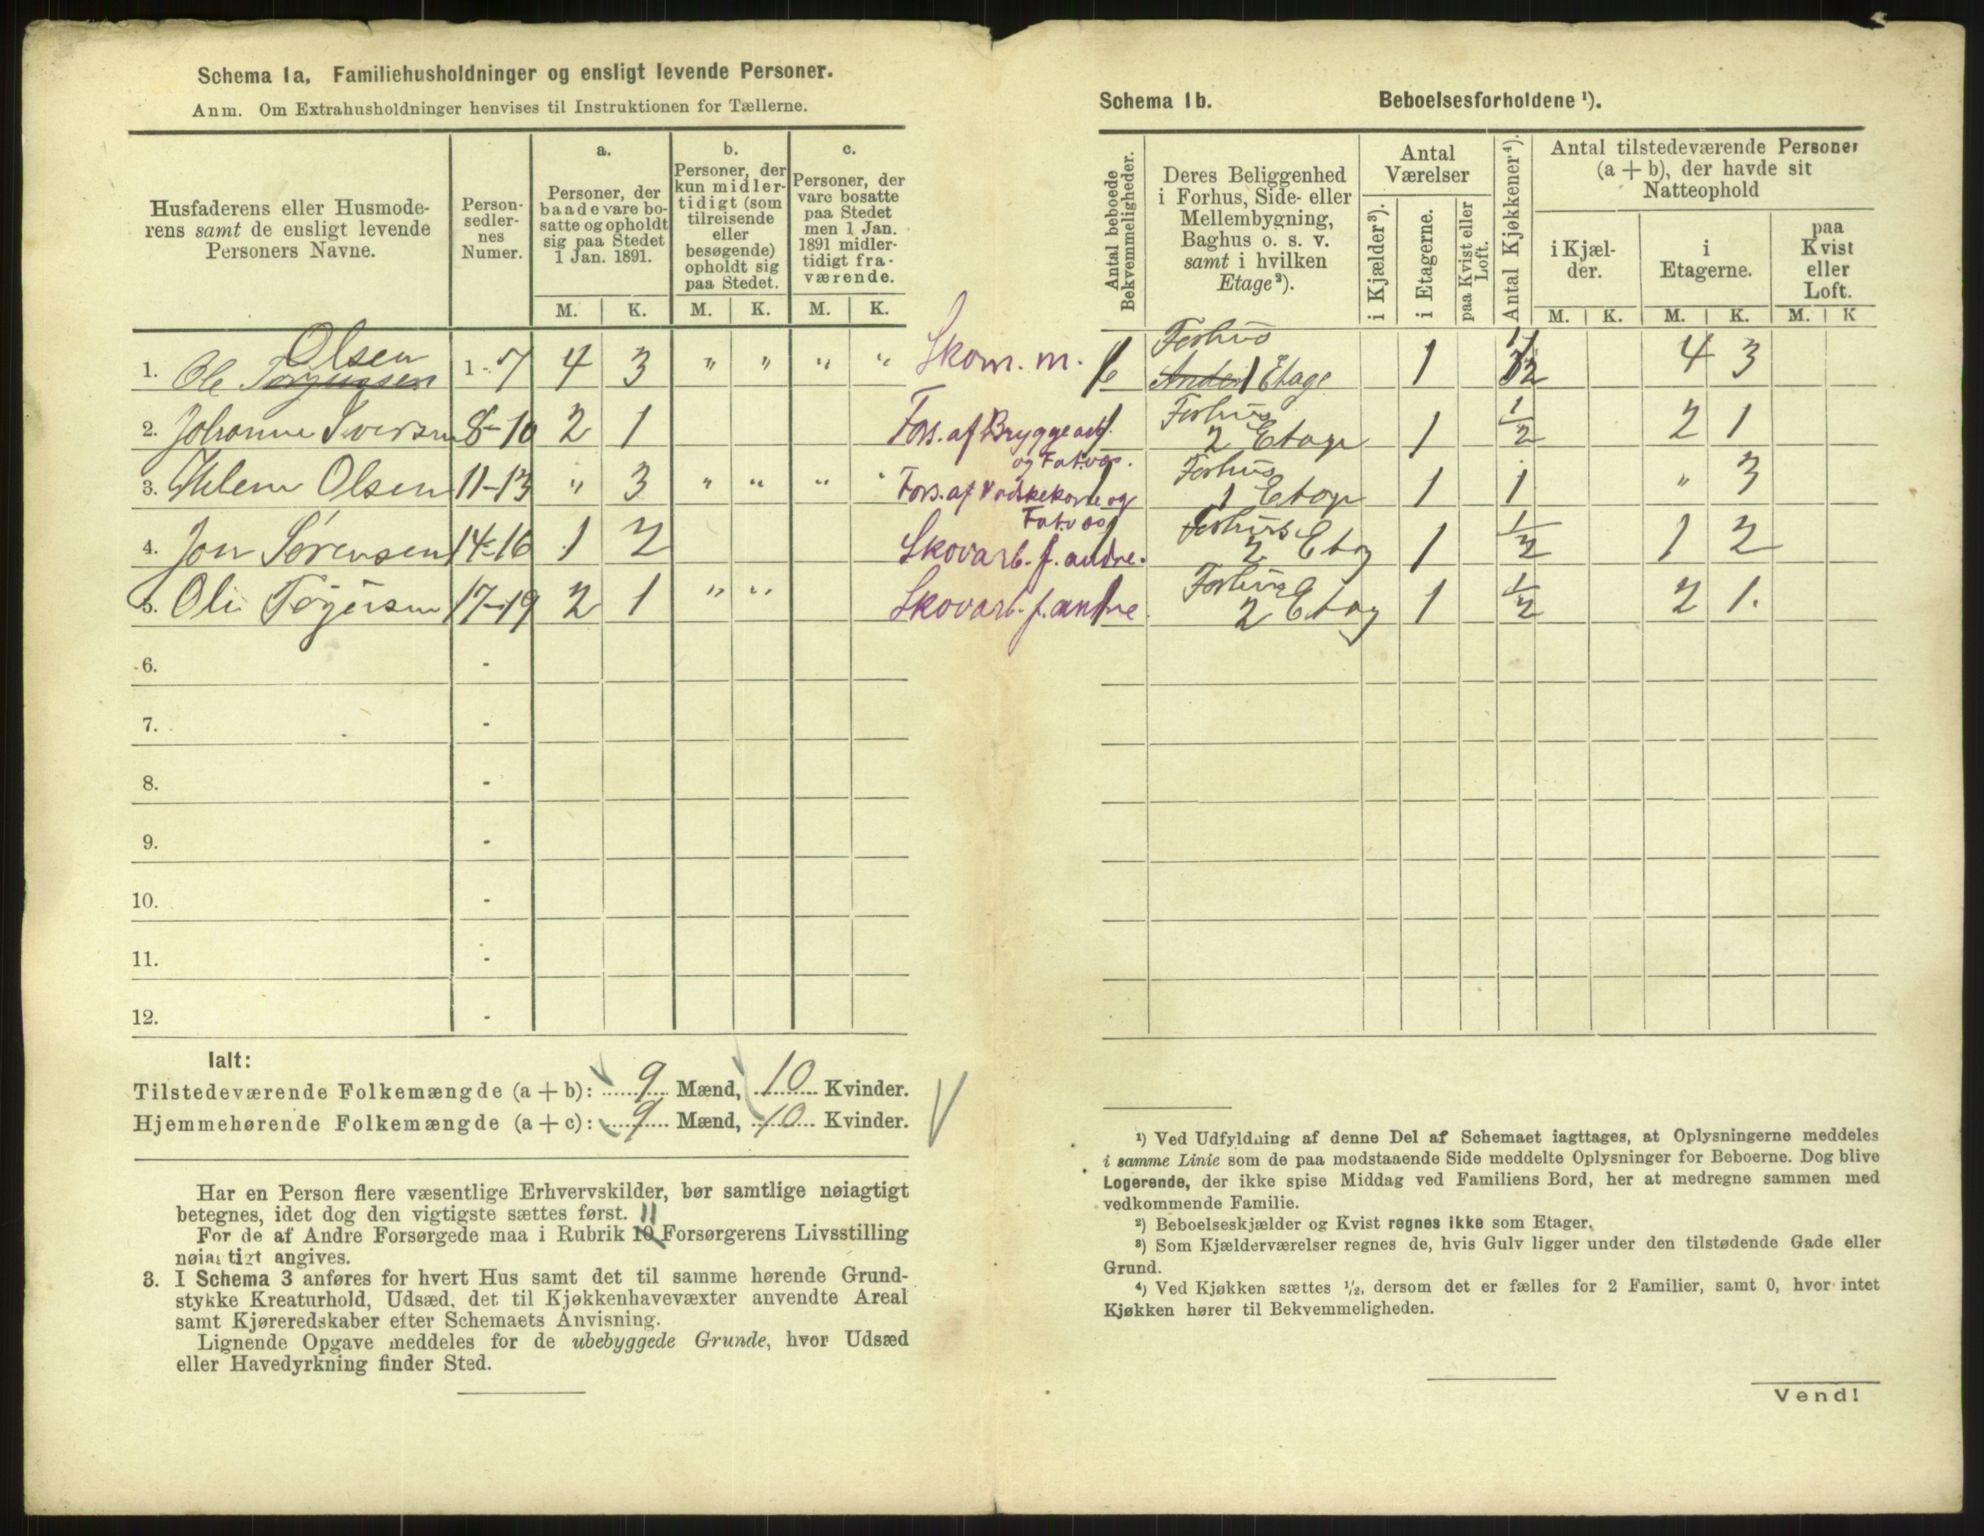 Schema 1a. Familiehusholdninger og ensligt levende Personer.
Anm. Om Extrahusholdninger henvises til Instruktionen for Tællerne.
Husfaderens eller Husmoderens samt de ensligt levende Personers Navne.
Person-sedler-nes Numer.
a. Personer, der baade vare bosatte og opholdt sig paa Stedet 1 Jan. 1891.
b. Personer, der kun midlertidigt (som tilreisende eller besøgende) opholdt sig paa Stedet.
c. Personer, der vare bosatte paa Stedet men 1 Jan. 1891 midlertidigt fraværende.
M. K. M. K. M. K.
1. Ole Olsen 1-7 4 3 " " " " Skom. m.
2. Johanne Iversen 8-10 2 1 Fors. af Bryggearb. og Fatvæs.
3. Helene Olsen 11-13 " 3 " " " " Fors. af Vadskekone og Fatvæs
4. Jon Sørensen 14-16 1 2 Skovarb. f. andre.
5. Ole Tørgersen 17-19 2 1 " " Skovarb. f. andre.
6. -
7. -
8. -
9. -
10. -
11. -
12. -
Ialt:
Tilstedeværende Folkemængde (a + b): 9 Mænd, 10 Kvinder.
Hjemmehørende Folkemængde (a + c): 9 Mænd, 10 Kvinder.
Har en Person flere væsentlige Erhvervskilder, bør samtlige nøiagtigt
betegnes, idet dog den vigtigste sættes først. 11
For de af Andre Forsørgede maa i Rubrik 10 Forsørgerens Livsstilling
nøiagtigt angives.
3. I Schema 3 anføres for hvert Hus samt det til samme hørende Grund-
stykke Kreaturhold, Udsæd, det til Kjøkkenhavevæxter anvendte Areal
samt Kjøreredskaber efter Schemaets Anvisning.
Lignende Opgave meddeles for de ubebyggede Grunde, hvor Udsæd
eller Havedyrkning finder Sted.
Schema 1b. Beboelsesforholdene ¹).
Antal beboede Bekvemmeligheder.
Deres Beliggenhed i Forhus, Side- eller Mellembygning, Baghus o. s. v. samt i hvilken Etage²).
Antal Værelser
i Kjælder³).
i Etagerne.
paa Kvist eller Loft.
Antal Kjøkkener⁴).
Antal tilstedeværende Personer (a + b), der havde sit Natteophold
i Kjælder.
i Etagerne.
paa Kvist eller Loft.
M. K. M. K. M. K
Forhus 1 Etage 1 1/2 4 3
1 Forhus 2 Etage 1 1/2 2 1
1 Forhus 1 Etage 1 1 " 3
1 Forhus 2 Etag 1 1/2 1 2
1 Forhus 2 Etag 1 1/2 2 1.
¹) Ved Udfyldning af denne Del af Schemaet iagttages, at Oplysningerne meddeles
i samme Linie som de paa modstaaende Side meddelte Oplysninger for Beboerne. Dog blive
Logerende, der ikke spise Middag ved Familiens Bord, her at medregne sammen med
vedkommende Familie.
²) Beboelseskjælder og Kvist regnes ikke som Etager.
³) Som Kjælderværelser regnes de, hvis Gulv ligger under den tilstødende Gade eller
Grund.
⁴) Ved Kjøkken sættes ½, dersom det er fælles for 2 Familier, samt 0, hvor intet
Kjøkken hører til Bekvemmeligheden.
Vend!